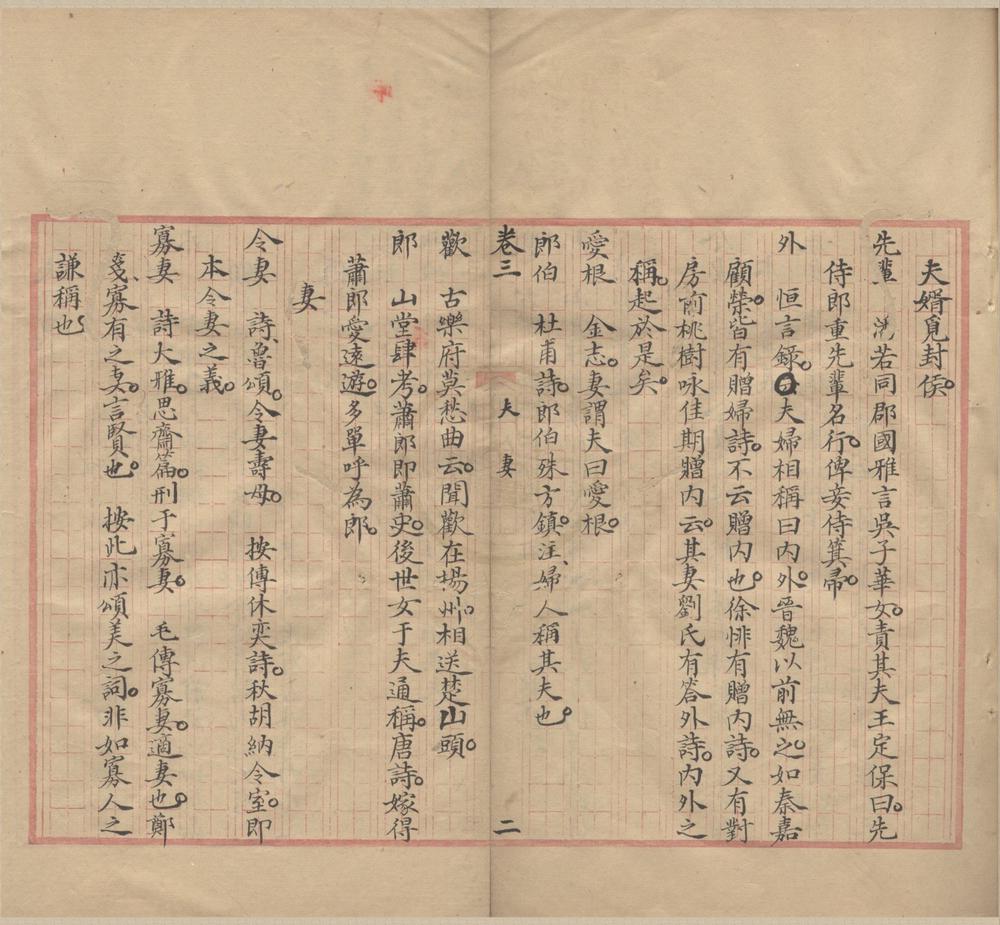 夫婿覓封侯。
先輩　　若同郡國雅言吳子華女。責其夫王定保曰。先
侍郎重先輩名行。俾妾侍箕帚。
外　恒言錄。夫婦相稱曰內外。晉魏以前無之。如秦嘉
顧榮。皆有贈婦詩。不云贈內也。徐悱有贈內詩。又有對
房前桃樹咏佳期贈內云。其妻劉氏有答外詩。內外之
稱。起於是矣。
愛根　金志。妻謂夫曰愛根。
郎伯　杜甫詩。郎伯殊方鎮。注。婦人稱其夫也。
卷三　夫妻　二
歡　古樂府莫愁曲云。聞歡在場州。相送楚山頭。
郎　山堂肆考。蕭郎即蕭史。後世女于夫通稱。唐詩。嫁得
蕭郎愛遠遊。多單呼為郎。
妻
令妻　詩。魯頌。令妻壽母。　按傅休奕詩。秋胡納令室。即
本令妻之義。
寡妻　詩大雅。思齋篇。刑于寡妻。　毛傳寡妻。適妻也。鄭
箋。寡有之妻。言賢也。　按此亦頌美之詞。非如寡人之
謙稱也。